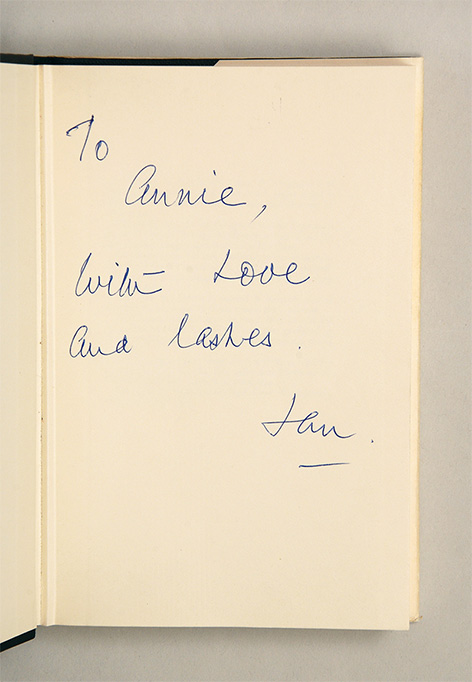 To
Annie,
With Love
and lashes.
Ian.